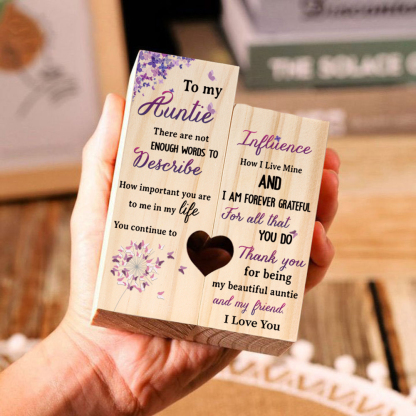 To my
Auntie
There are not
ENOUGH WORDS TO
Describe
How important you are
to me in my life
You continue to
Influence
How I Live Mine
AND
I AM FOREVER GRATEFUL
For all that
YOU DO
Thank you
for being
my beautiful auntie
and my friend.
I Love You
THE SOLACE O